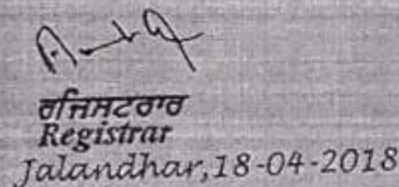 ਰਜਿਸਟਰਾਰ
Registrar
Jalandhar,18-04-2018